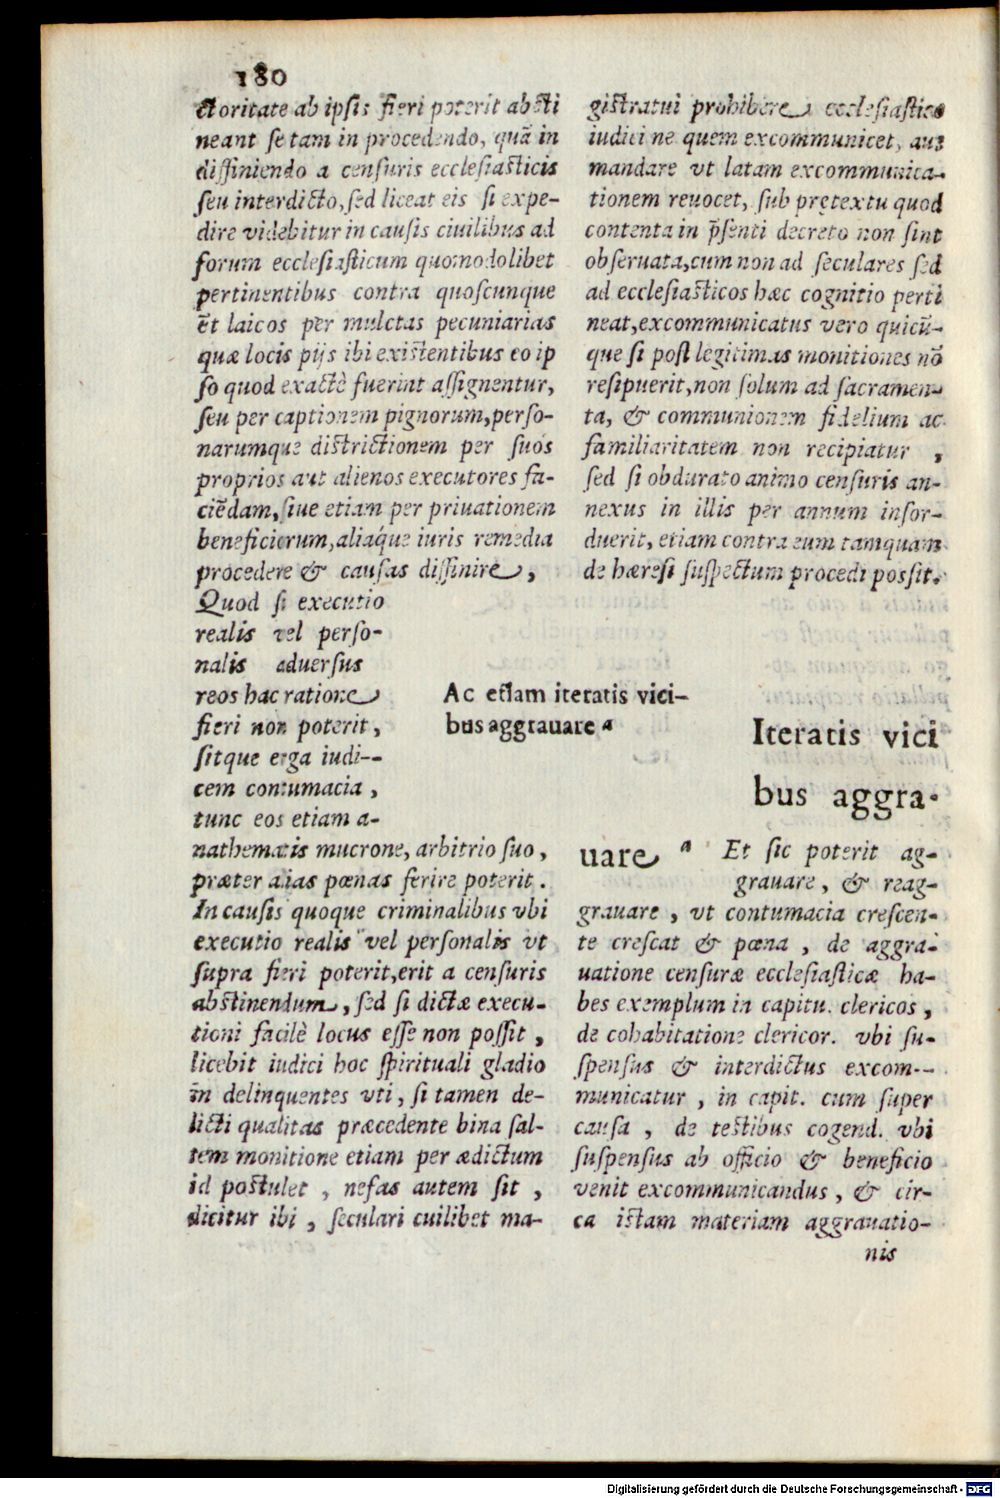 180
ctoritate ab ipsis fieri poterit absti
neant se tam in procedendo, quã in
diffiniendo a censuris ecclesiasticis
seu interdicto, sed liceat eis si expe-
dire videbitur in causis ciuilibus ad
forum ecclesiasticum quomodolibet
pertinentibus contra quoscunque
et laicos per mulctas pecuniarias
quæ locis pijs ibi existentibus eo ip
so quod exactè fuerint assignentur,
seu per captionem pignorum, perso-
narumque districtionem per suos
proprios aut alienos executores fa-
ciẽdam, siue etiam per priuationem
beneficiorum, aliáque iuris remedia
procedere & causas diffinire,
Quod si executio
realis vel perso-
nalis aduersus
reos hac ratione
fieri non poterit,
sitque erga iudi--
cem contumacia,
tunc eos etiam a-
nathematis mucrone, arbitrio suo,
præter alias pœnas ferire poterit.
In causis quoque criminalibus vbi
executio realis vel personalis vt
supra fieri poterit, erit a censuris
abstinendum, sed si dictæ execu-
tioni facilè locus esse non possit,
licebit iudici hoc spirituali gladio
in delinquentes vti, si tamen de-
licti qualitas præcedente bina sal-
tem monitione etiam per ædictum
id postulet, nefas autem sit,
dicitur ibi, seculari cuilibet ma-
gistratui prohibere ecclesiastico
iudici ne quem excommunicet, aut
mandare vt latam excommunica-
tionem reuocet, sub prętextu quod
contenta in p̃senti decreto non sint
obseruata, cum non ad seculares sed
ad ecclesiasticos hæc cognitio perti
neat, excommunicatus vero quicũ-
que si post legitimas monitiones nõ
resipuerit, non solum ad sacramen-
ta, & communionem fidelium ac
familiaritatem non recipiatur,
sed si obdurato animo censuris an-
nexus in illis per annum insor-
duerit, etiam contra eum tamquam
de hæresi suspectum procedi possit.
Ac etiam iteratis vici-
bus aggrauare a
Iteratis vici
bus aggra-
uare a Et sic poterit ag-
grauare, & reag-
grauare, vt contumacia crescen-
te crescat & pœna, de aggra-
uatione censuræ ecclesiasticæ ha-
bes exemplum in capitu. clericos,
de cohabitatione clericor. vbi su-
spensus & interdictus excom--
municatur, in capit. cum super
causa, de testibus cogend. vbi
suspensus ab officio & beneficio
venit excommunicandus, & cir-
ca istam materiam aggrauatio-
nis
Digitalisierung gefördert durch die Deutsche Forschungsgemeinschaft - DFG